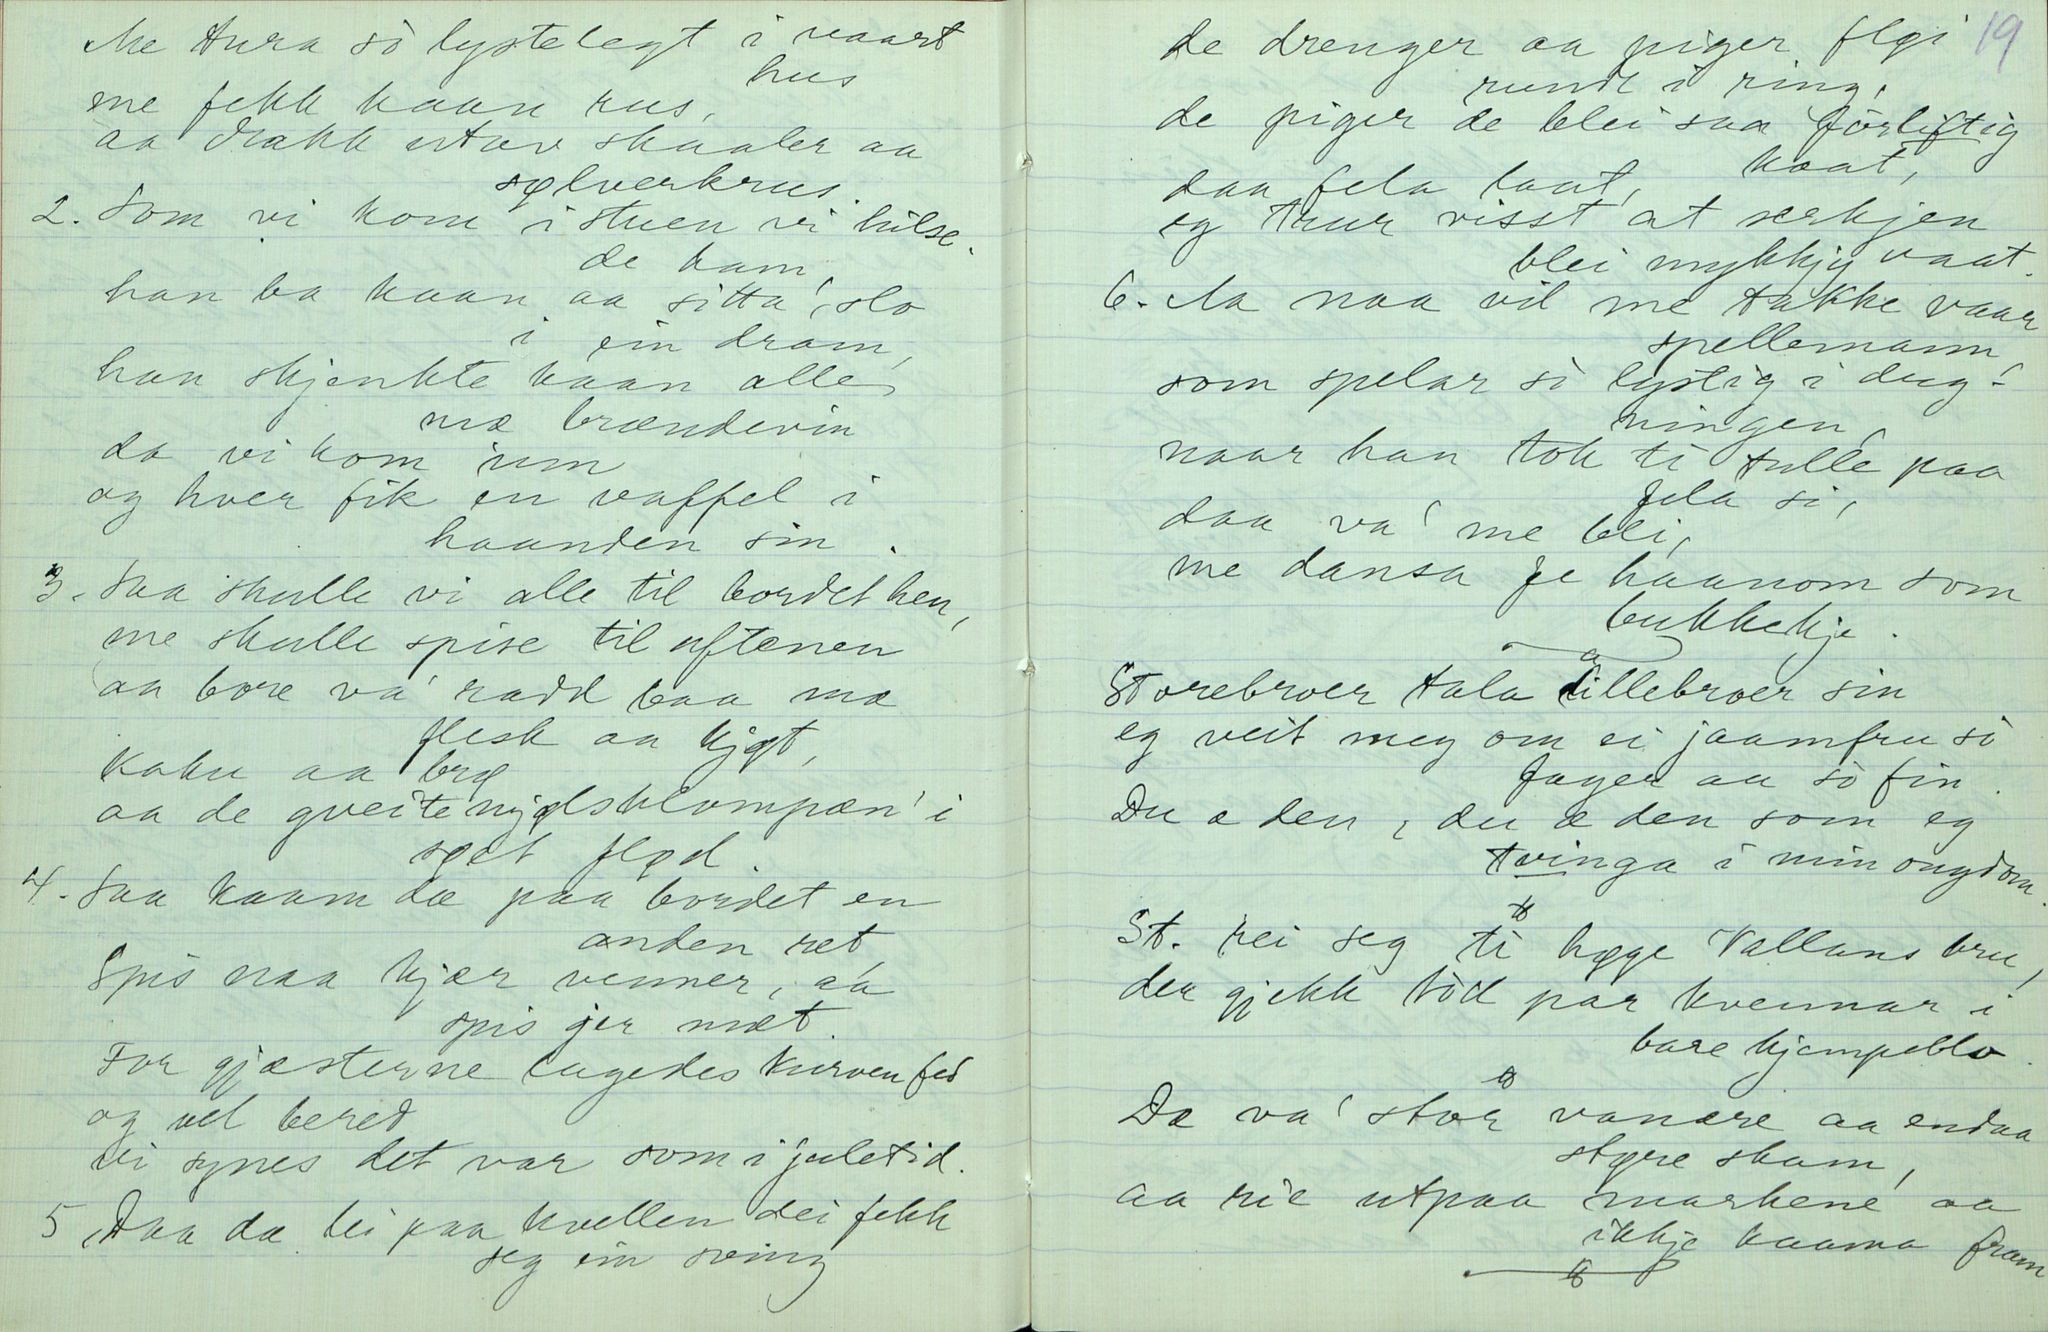 Me tura sò lystelegt i vaart
hus
me fekk kaan rus,
aa drakk utav skaaler aa
sølverkrus.
2. Som vi kom i stuen vi hilse-
de ham,
han ba kaan aa sitta', slo
i ein dram,
han skjenkte kaan alle
mæ brændevin
da vi kom inn
og hver fik en vaffel i
haanden sin.
3. Saa skulle vi alle til bordet hen,
me skulle spise til aftenen
aa bore va' radd baa mæ
flesk aa kjøt,
kaku aa brø
aa de gveitemjølsklompæn' i
søet flød.
4. Saa kaam dæ paa bordet en
anden ret,
Spis naa kjær venner, aa
spis jer mæt.
For gjæsterne lagedes kurven fed
og vel bered
vi synes det var som i juletid.
5. Daa dæ lei paa kvellen dei fekk
seg ein sving
19
de drenger aa piger fløi
rundt i ring,
de piger de blei saa förliftig
kaat,
daa fela laat,
eg trur visst at særkjen
blei mykkjy vaat.
6. Aa naa vil me takke vaar
spellemann,
som spelar sò lystig i dug-
ningen,
naar han tok ti tulle paa
fela si,
daa va' me bli,
me dansa fe haanom som
bukkekje.
Storebroer tala a lillebroer sin
eg veit meg om ei jaamfru sò
fager aa sò fin.
Du æ den, du æ den som eg
tvinga i min ongdom.
St. rei seg ti høge Vallans bru,
der gjekk tòd par kvennar i
bare kjempeblo.
Dæ va' stor vanære aa endaa
støre skam,
aa rie utpaa markene aa
ikkje kaama fram